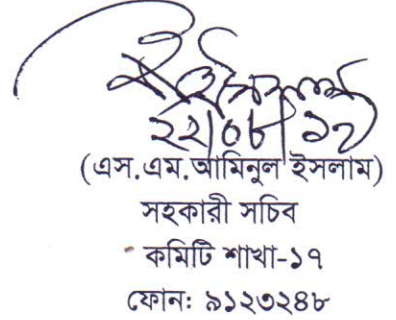 ২২/০৮/১৭
(এস.এম.আমিনুল ইসলাম)
সহকারী সচিব
কমিটি শাখা-১৭
ফোনঃ ৯১২৩২৪৮